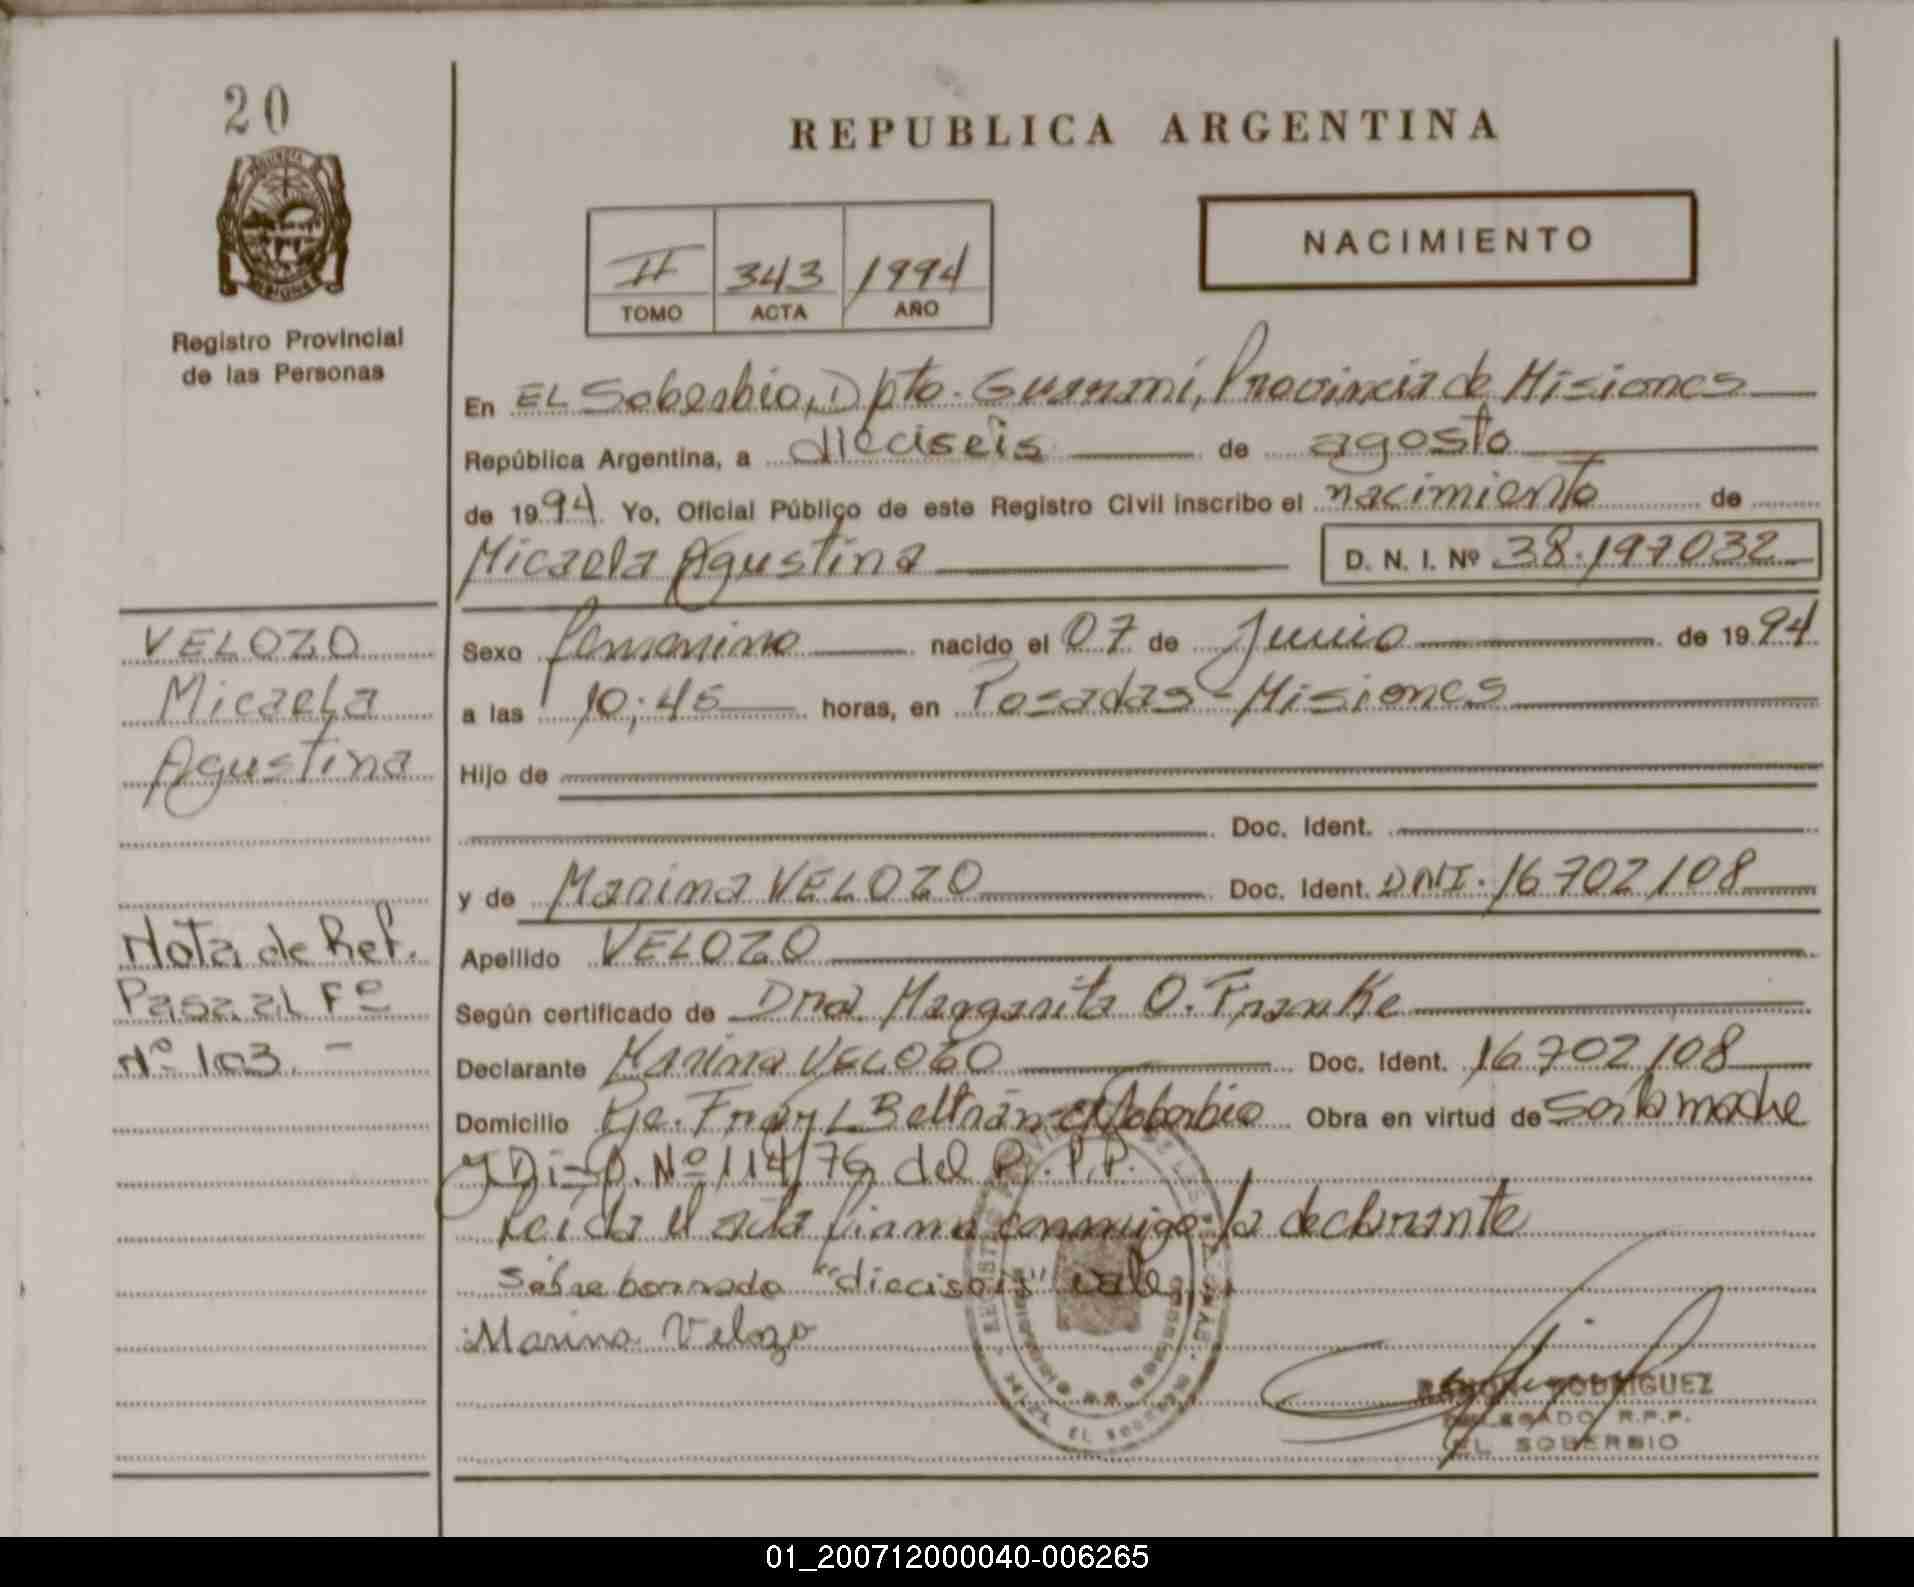 20
REPUBLICA ARGENTINA
Registro Provincial
de las Personas
II 343 1994
TOMO ACTA AÑO
NACIMIENTO
En EL Soberbio, Dpto. Guaraní, Provincia de Misiones
República Argentina, a dieciseis de agosto
de 1994 Yo, Oficial Público de este Registro Civil inscribo el nacimiento de
Micaela Agustina D. N. I. Nº 38.197032
VELOZO
Micaela
Agustina
Sexo femenino nacido el 07 de Junio de 1994
a las 10:45 horas, en Posadas - Misiones
Hijo de
Doc. Ident.
y de Marina VELOZO Doc. Ident. DNI. 16702108
Nota de Ref.
Pasa al Fº
Nº 103. -
Apellido VELOZO
Según certificado de Dra. Margarita O. Franke
Declarante Marina VELOZO Doc. Ident. 16702108
Domicilio Pje. Fray L Beltrán - El Soberbio Obra en virtud de ser la madre
y Disp. Nº 114/76 del R.P.P.
Leída el acta firma conmigo la declarante
Sobre borrado "dieciseis" vale
Marina Velozo
RAMON RODRIGUEZ
DELEGADO R.P.P.
EL SOBERBIO
01_200712000040-006265